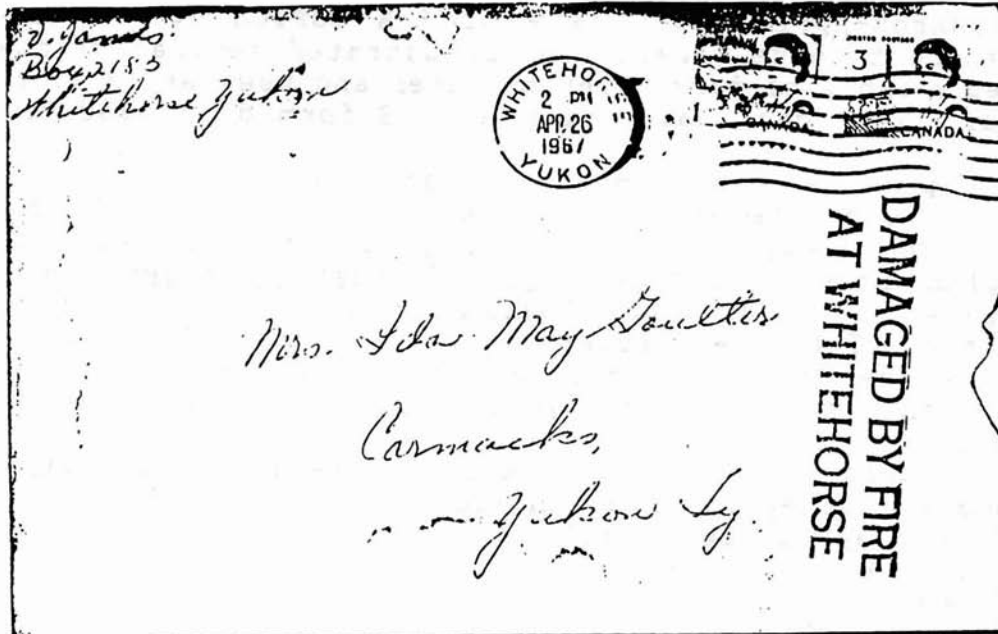 Box 2185
Whitehorse Yukon
WHITEHORSE
2 PM
APR 26
1967
YUKON
POSTES POSTAGE
3
CANADA
CANADA
DAMAGED BY FIRE
AT WHITEHORSE
Mrs. Ida May Goulter
Carmacks,
Yukon Ty.